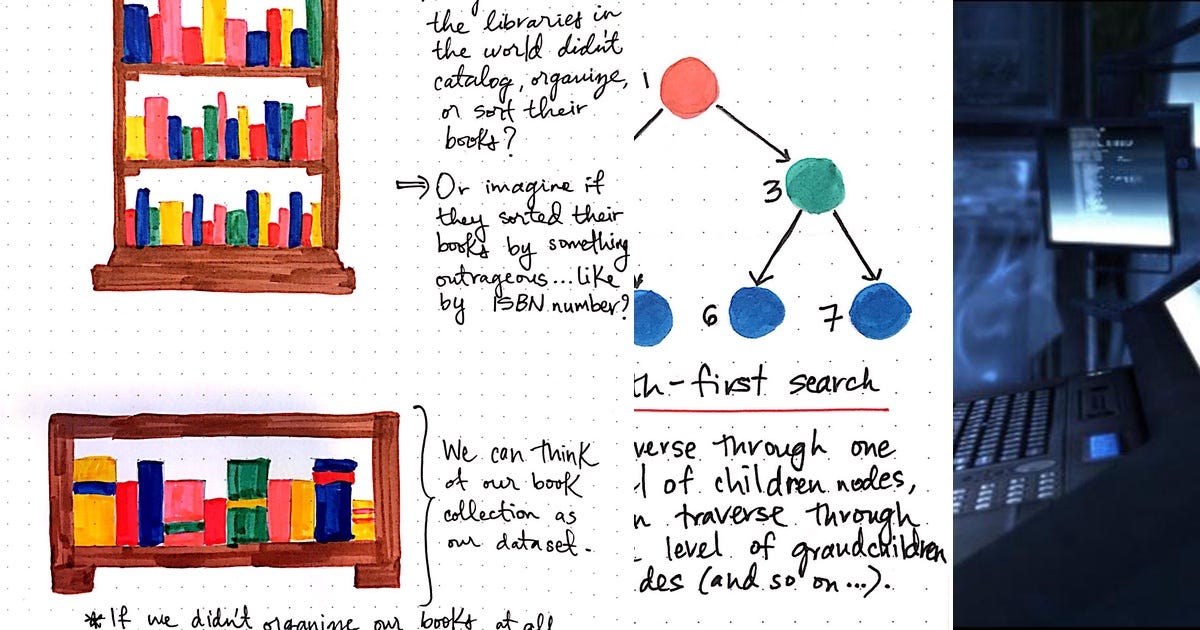 the libraries in
the world didn't
catalog, organize,
or sort their
books?
⇒ Or imagine if
they sorted their
books by something
outrageous...like
by ISBN number?
We can think
of our book
collection as
our dataset.
* If we didn't organize our books at all
1
3
6
7
th-first search
verse through one
l of children nodes,
n traverse through
level of grandchildren
des (and so on...).